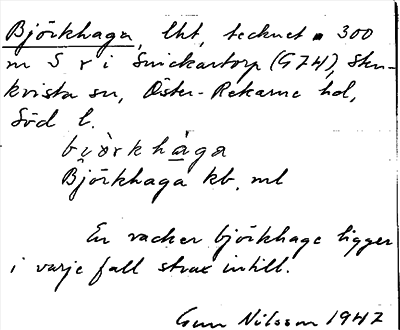 Björkhaga, lht, tecknet ▪ 300
m S r i Snickartorp (G7H), Sten-
kvista sn, Öster-Rekarne hd,
Söd l.
bi̯ò̀rkhàga
Björkhaga kb, ml
En vacker björkhage ligger
i varje fall strax intill.
Gun Nilsson 1947